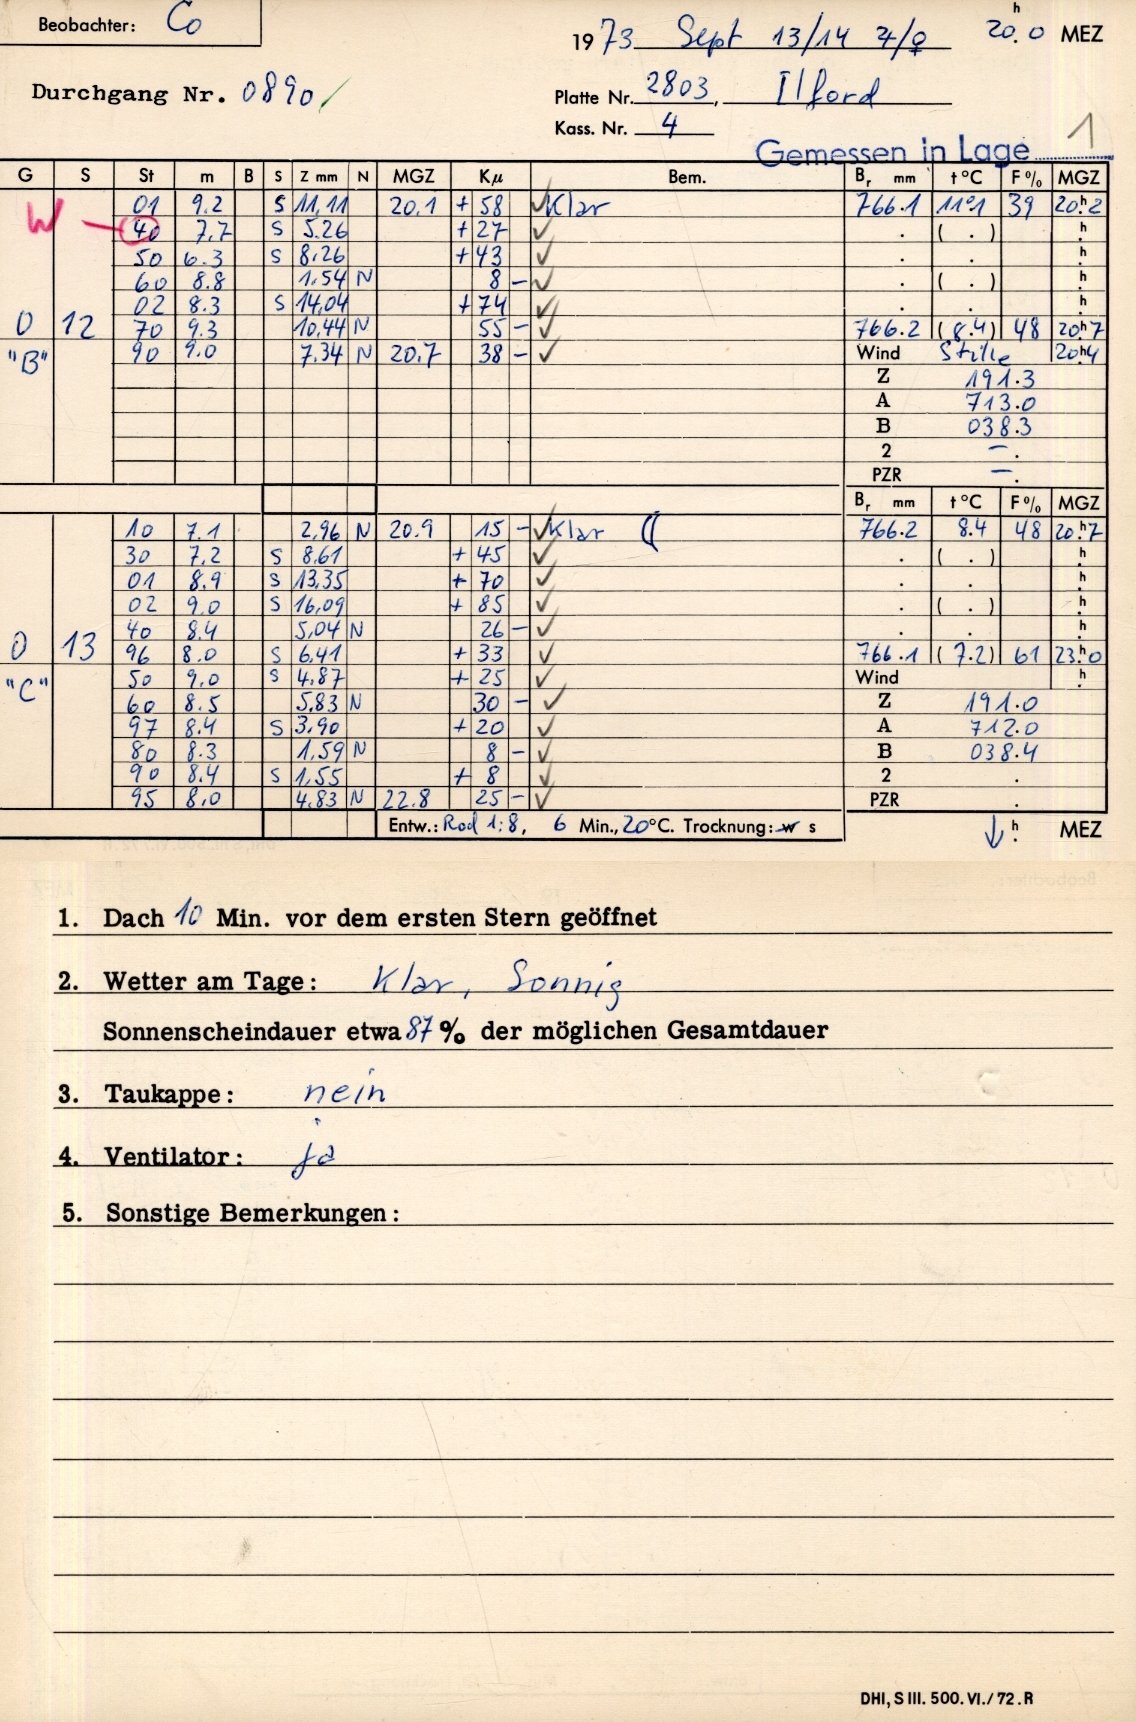 Beobachter: Co
1973 Sept 13/14 ♃/♀ 20.0 h MEZ
Durchgang Nr. 0890 ✓
Platte Nr. 2803, Ilford
Kass. Nr. 4
Gemessen in Lage 1
G S St m B S Z mm N MGZ Kμ Bem. Br mm t °C F % MGZ
01 9.2 S 11,11 20.1 + 58 ✓ Klar 766.1 11°1 39 20h2
W 40 7.7 S 5.26 + 27 ✓ . ( . ) h
50 6.3 S 8.26 + 43 ✓ . . h
60 8.8 1.54 N 8 – ✓ . ( . ) h
02 8.3 S 14,04 + 74 ✓ . . h
0 12 70 9.3 10,44 N 55 – ✓ 766.2 (8.4) 48 20h7
"B" 90 9.0 7.34 N 20.7 38 – ✓ Wind Stille 20h4
Z 191.3
A 713.0
B 038.3
2 – .
PZR – .
Br mm t °C F % MGZ
10 7.1 2,96 N 20.9 15 – ✓ Klar ☾ 766.2 8.4 48 20h7
30 7.2 S 8.61 + 45 ✓ . ( . ) h
01 8.9 S 13,35 + 70 ✓ . . h
02 9.0 S 16,09 + 85 ✓ . ( . ) h
40 8.4 5,04 N 26 – ✓ . . h
0 13 96 8.0 S 6,41 + 33 ✓ 766.1 (7.2) 61 23h0
"C" 50 9.0 S 4,87 + 25 ✓ Wind h
60 8.5 5.83 N 30 – ✓ Z 191.0
97 8.4 S 3,90 + 20 ✓ A 712.0
80 8.3 1,59 N 8 – ✓ B 038.4
90 8.4 S 1,55 + 8 ✓ 2 .
95 8.0 4,83 N 22.8 25 – ✓ PZR .
Entw.: Rod 1:8, 6 Min., 20°C. Trocknung: w s ↓ h MEZ
1. Dach 10 Min. vor dem ersten Stern geöffnet
2. Wetter am Tage: Klar, Sonnig
Sonnenscheindauer etwa 87 % der möglichen Gesamtdauer
3. Taukappe: nein
4. Ventilator: ja
5. Sonstige Bemerkungen:
DHI, S III. 500. VI./72. R